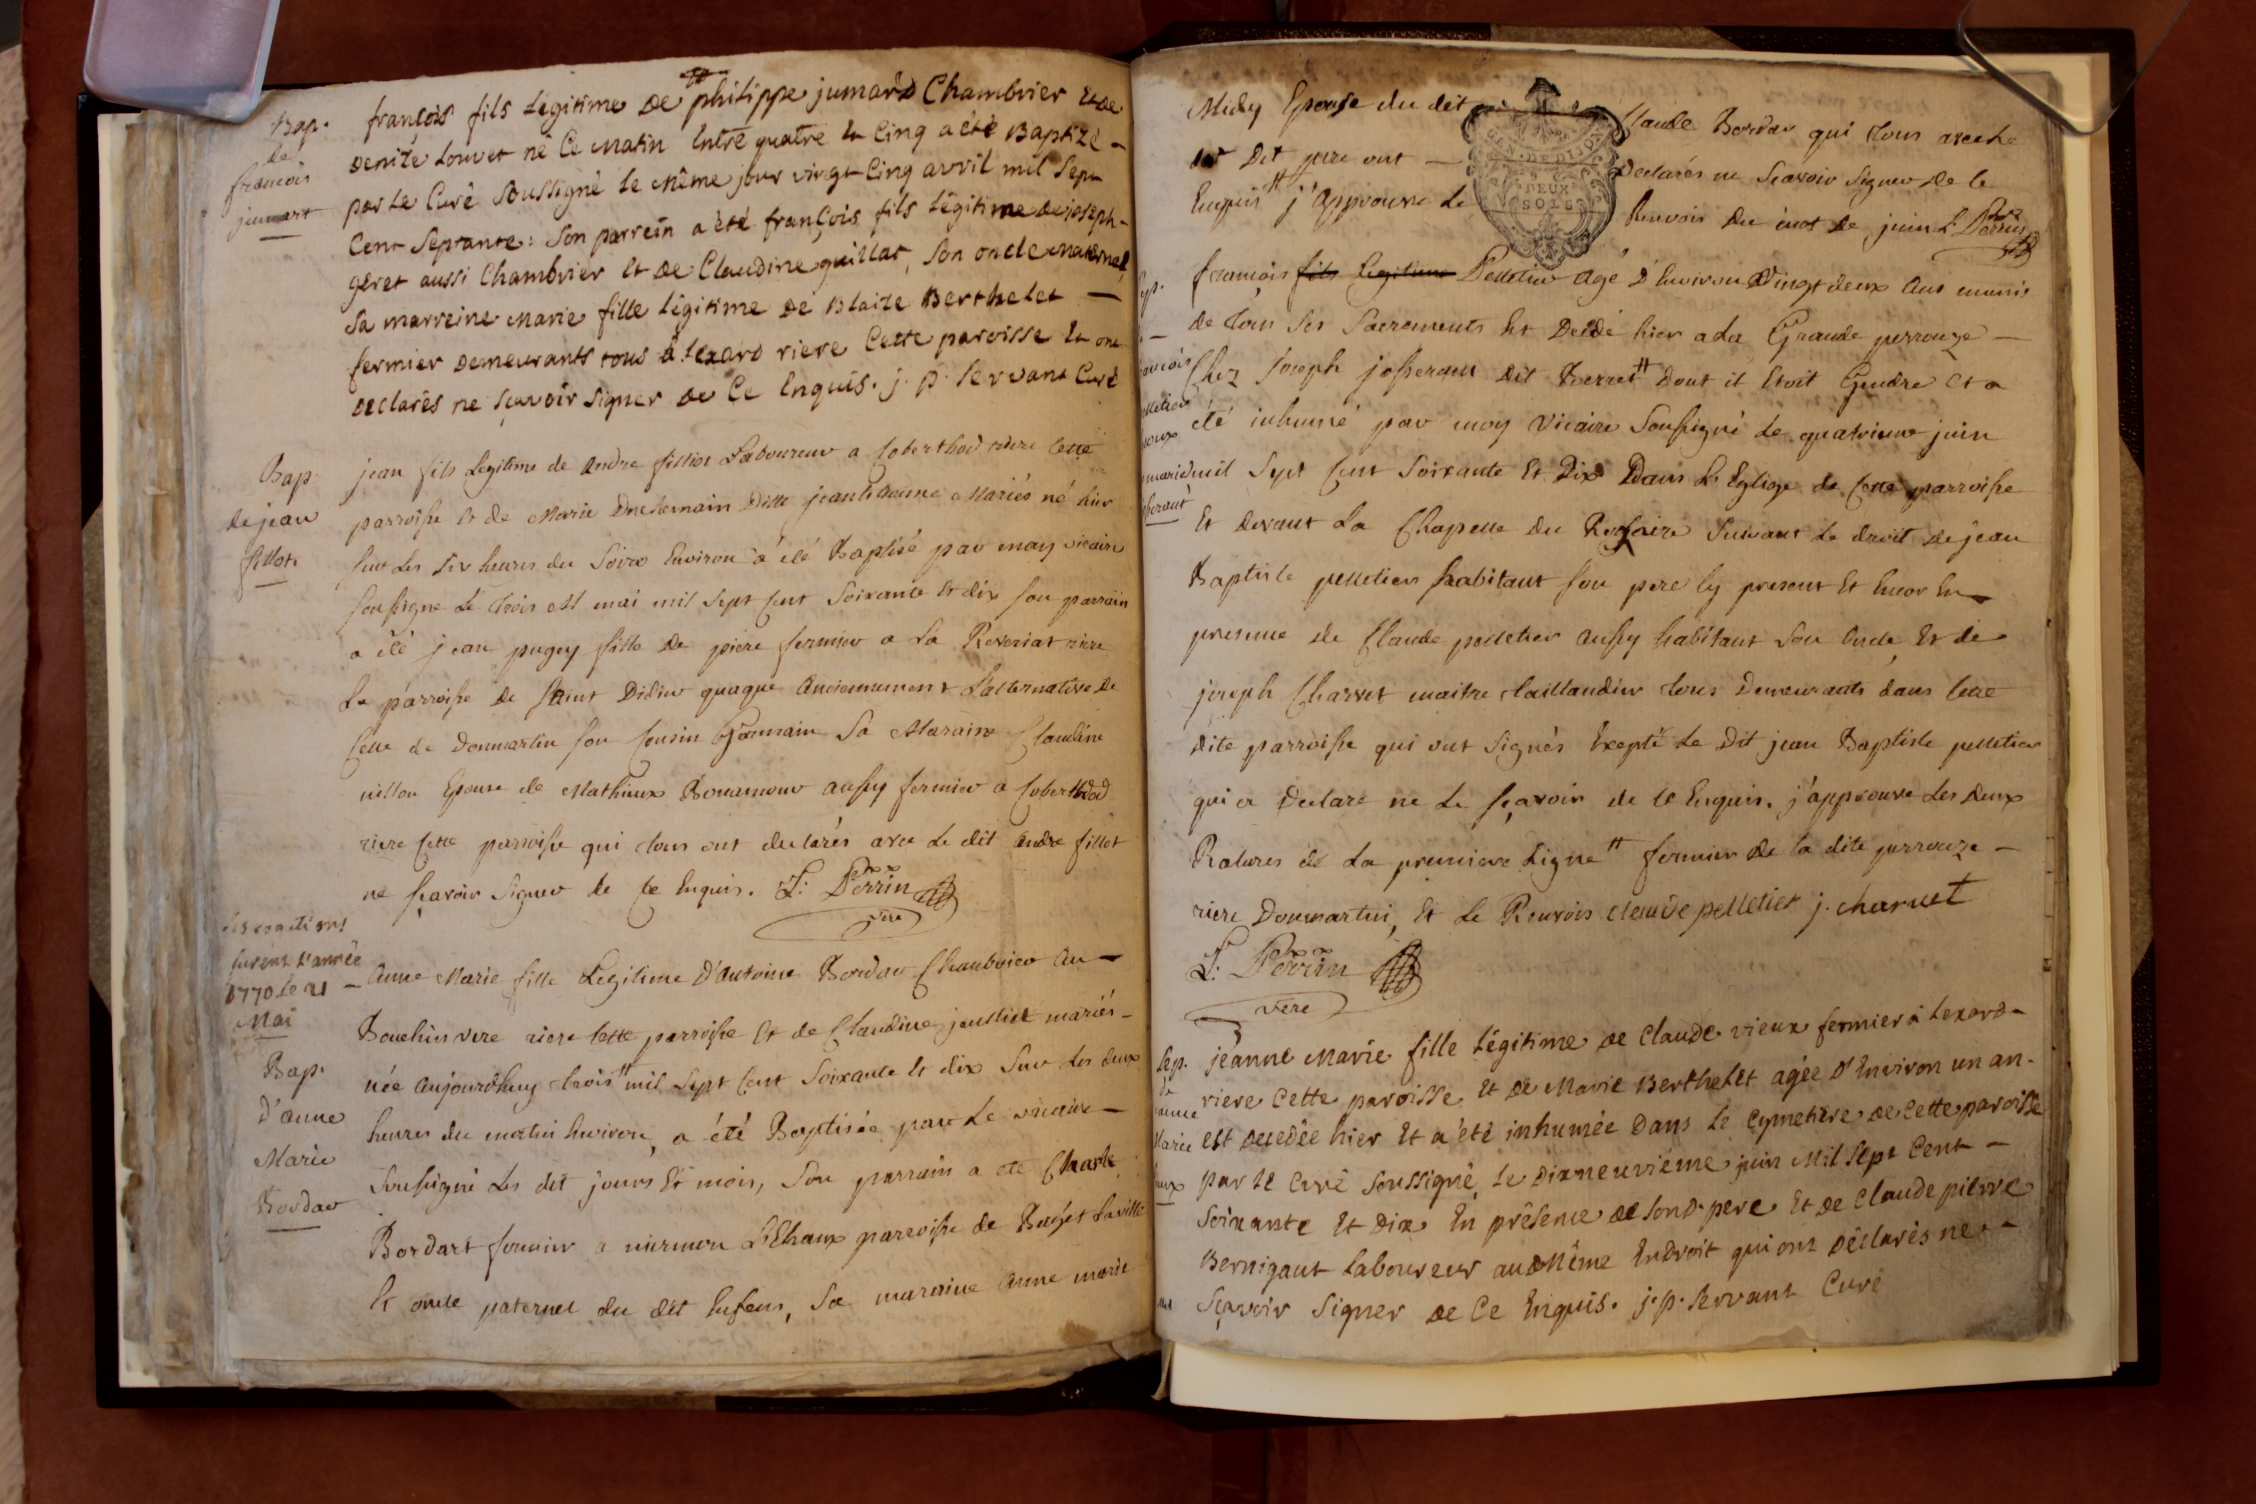 Bap.
de
françois
jumart
françois fils Légitime De # philippe jumard Chambrier Et de
Denize Louvet né Ce Matin Entre quatre Et Cinq a été Baptizé -
par Le Curé Soussigné Le Même jour vingt Cinq avril mil Sept
Cent Septante: Son parrein a été françois fils Légitime de joseph -
geret aussi Chambrier Et De Claudine guillat, Son oncle maternel,
Sa marreine Marie fille Légitime De Blaize Berthelet —
fermier Demeurants tous à Lexard riere Cette paroisse Et ont
Déclarés ne Sçavoir Signer De Ce Enquis. j. p. Servant Curé
Bap.
de jean
fillot
jean fils Legitime de Andre filliot Laboureur a Coberthod riere Cette
parroisse Et de Marie Duchemain Ditte jeanti Mariés né hier
Sur Les Six heures du Soire Environ a été Baptisé par moy vicaire
Soussigné Le trois Mai mil Sept Cent Soixante Et dix Son parrain
a été jean pugey fils De piere fermier a La Reveriat riere
La parroisse De Saint Didier quaque Anciennement L'alternative De
Celle de Donmartin Son Cousin Germain Sa Maraine Claudine
villon Epouse de Mathieux Bonamour aussy fermier a Coberthod
riere Cette parroisse qui tous ont declarés avec Le dit Andre fillot
ne Sçavoir Signer de Ce Enquis. L: Perrin
vire
furent L'année
1770 Le 21
Mai
Bap.
d'anne
Marie
Bordar
Anne Marie fille Legitime D'antoine Bordar Chambrier Au —
Bouchin vere riere Cette parroisse Et de Claudine jousliet mariés -
née Aujourdhuy trois # mil Sept Cent Soixante Et dix Sur Les deux
heures du matin Environ, a été Baptisée par Le vicaire —
Soussigné Les dit jours Et mois, Son parrain a été Claude
Bordart fermier a mirmon L'Ehaux parroisse de Bugét La ville
Et oncle paternel du dit Enfans, Sa maraine Anne marie
Midy Epouse du dit Claude Bordar qui tous avec Le
dit Dit pere ont — Declarés ne Scavoir Signer De Ce
Enquis # j'approuve Le Renvois Du mot De juin L. Perrin
GEN. DE DIJON
DEUX
SOLS
françois fils Legitime Pelletier Agé D'Environ Vingt deux Ans munis
de tous Ses Sacrements Est Decedé hier a La Grande perrouze —
Chez Joseph josserant dit # Dont il Etoit Gendre Et a
été inhumé par moy Vicaire Soussigné Le quatrieme juin
mil Sept Cent Soixante Et Dix Dans L'Eglise de Cette parroisse
Et devant La Chapelle du Rosaire Suivant Le droit de jean
Baptiste pelletier habitant Son pere Cy present Et Encor En
presence de Claude pelletier Aussy habitant Son Oncle, Et de
joseph Charvet maitre taillandier tous Demeurants dans Cette
dite parroisse qui ont Signés Excepté Le Dit jean Baptiste pelletier
qui a Declaré ne Le Sçavoir de Ce Enquis. j'approuve Les deux
Ratures de La premiere Ligne # fermier De La dite perrouze —
riere Donmartin, Et Le Renvois claude pelletier j. charvet
L: Perrin
vire
Sep.
de
Marie
jeanne Marie fille Légitime De Claude vieux fermier à Lexard -
riere Cette paroisse Et De Marie Berthelet agée D'Environ un an -
est Décedée hier Et a été inhumée Dans Le Cymetiere De Cette paroisse
par Le Curé Soussigné, Le Dixneuviéme juin Mil Sept Cent —
Soixante Et Dix En présence De Sond. pere Et De Claude pierre
Bernigaut Laboureur au Même Endroit qui ont Déclarés ne -
Sçavoir Signer De Ce Enquis. j. p. Servant Curé